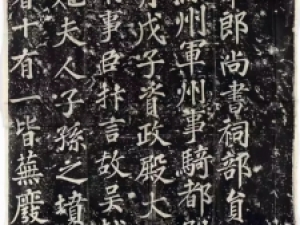 郎尚書祠部員
州軍州事騎都
戊子資政殿大
事臣抃言故吳
妃夫人子孫之墳
者十有一皆蕪廢